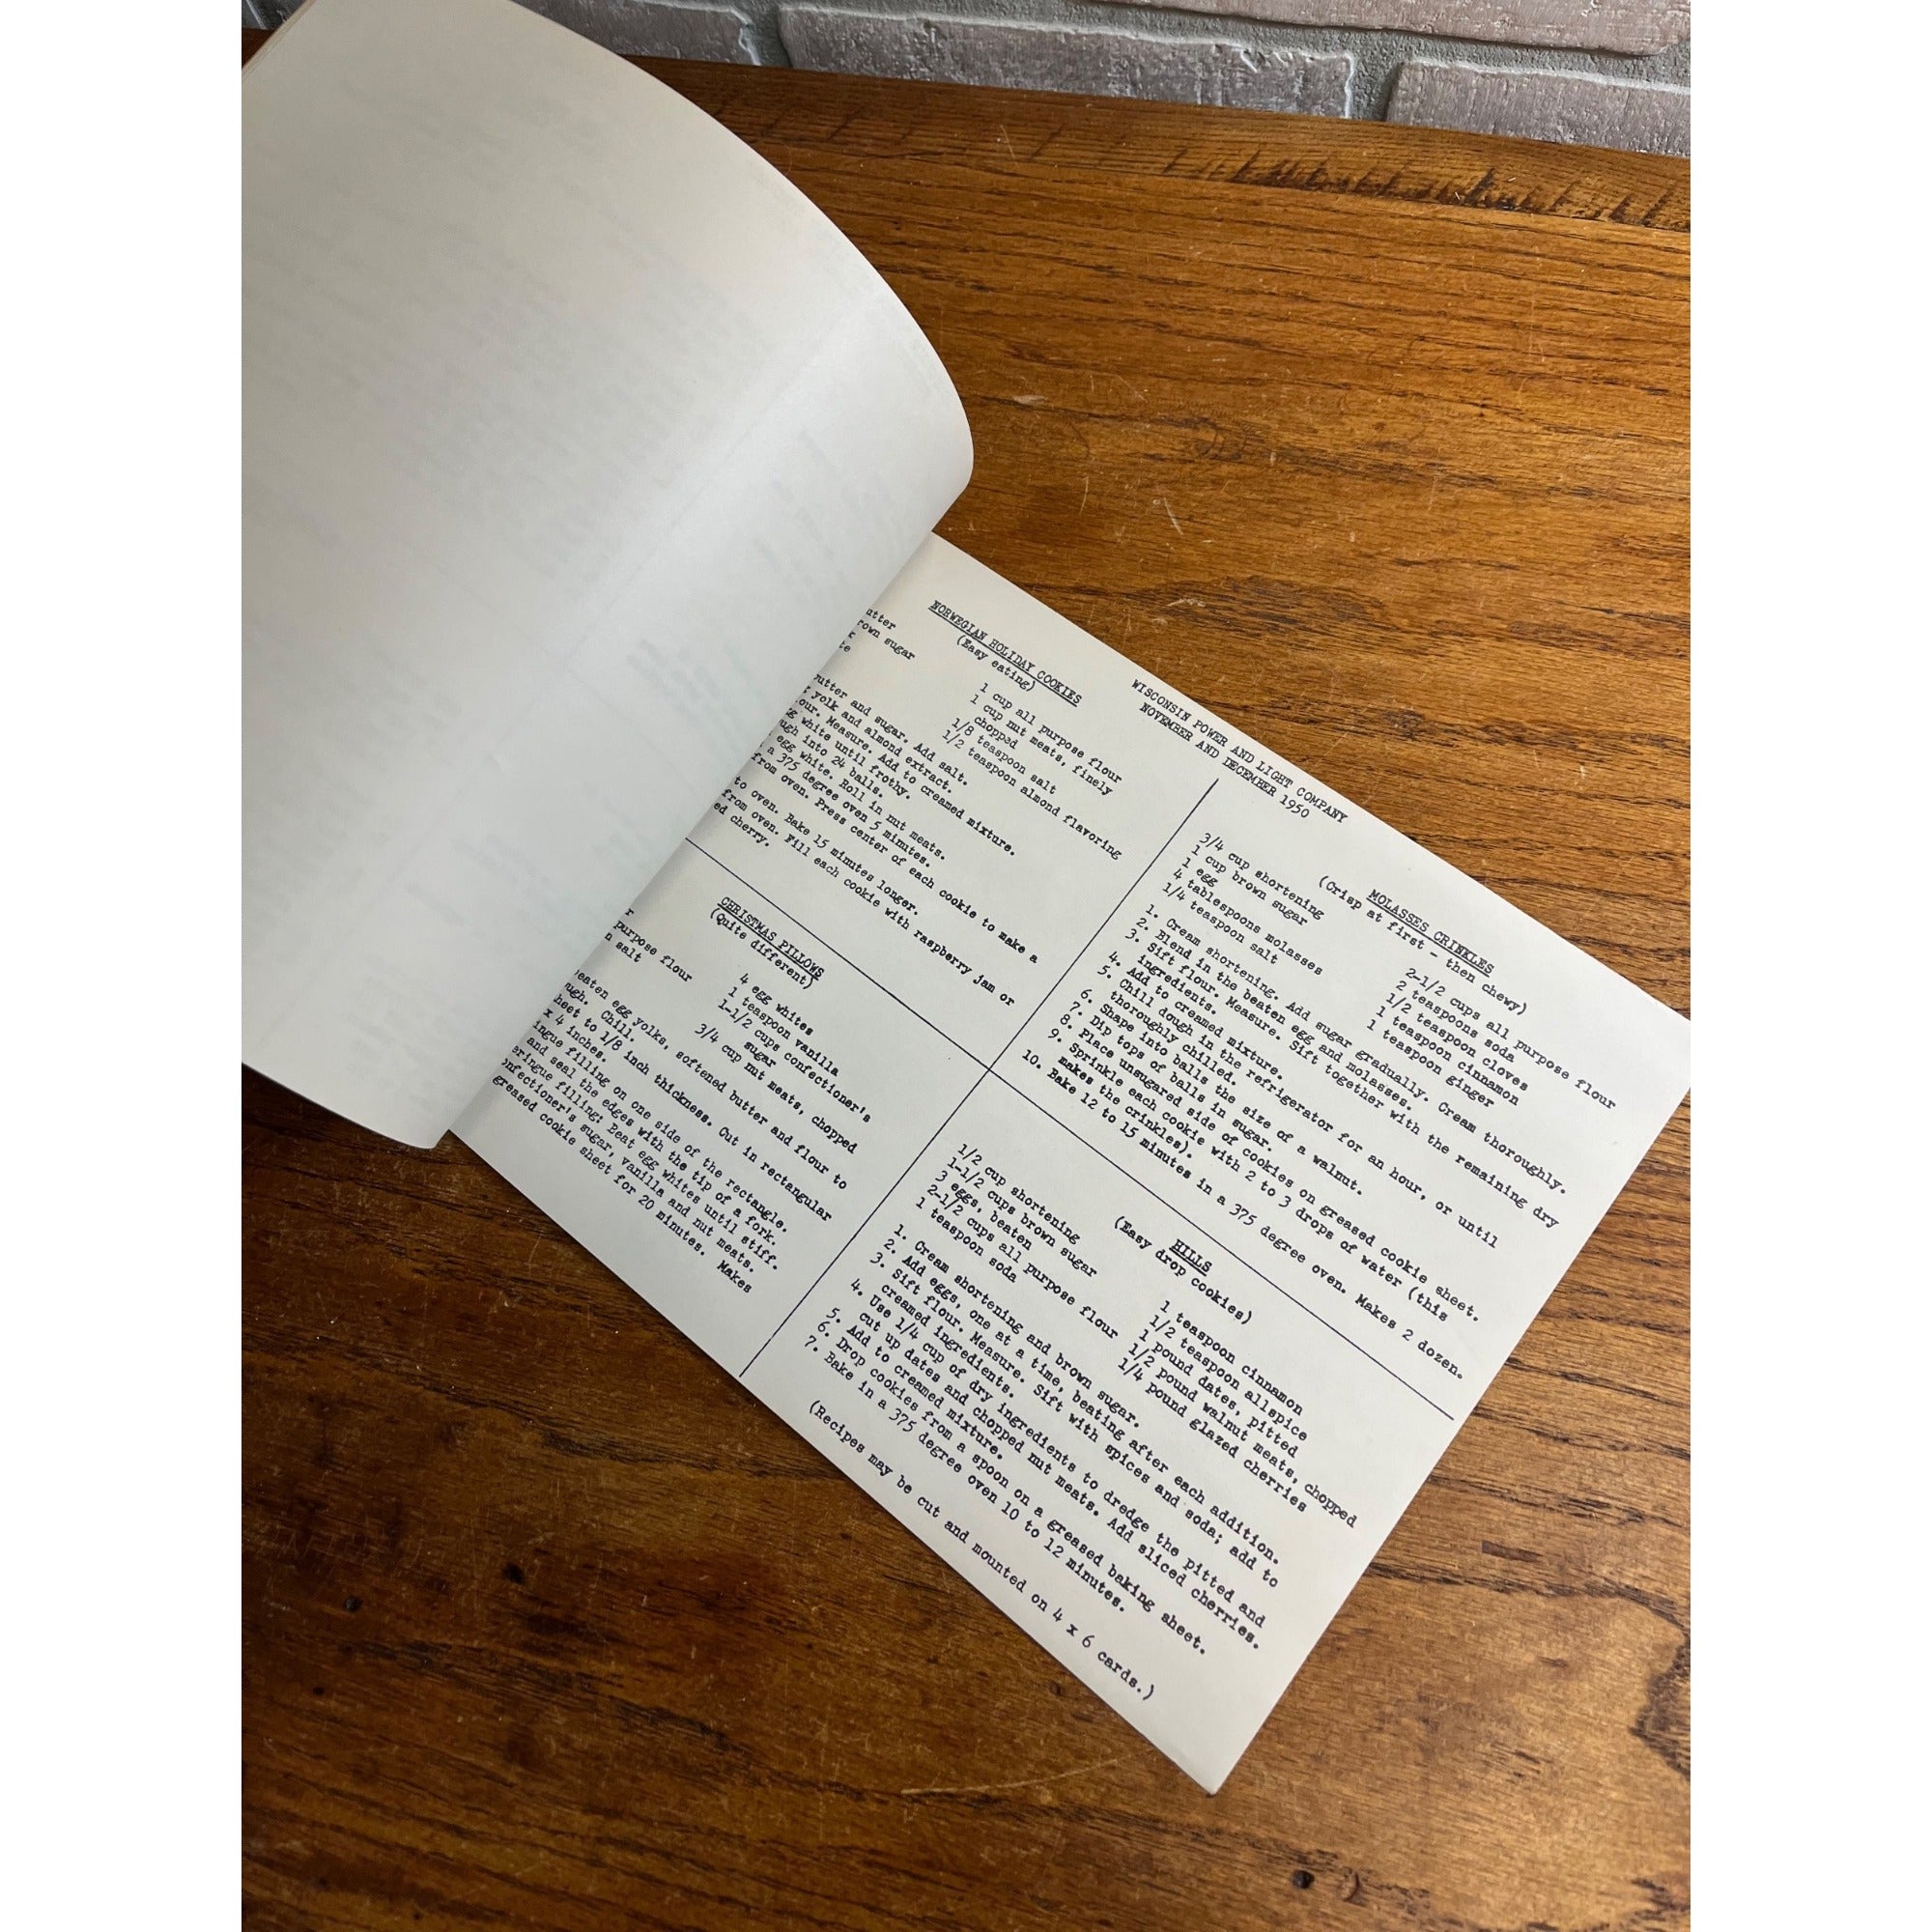 WISCONSIN POWER AND LIGHT COMPANY
NOVEMBER AND DECEMBER 1950
NORWEGIAN HOLIDAY COOKIES
(Easy eating)
brown sugar
1 cup all purpose flour
1 cup nut meats, finely
chopped
1/8 teaspoon salt
1/2 teaspoon almond flavoring
butter and sugar. Add salt.
yolk and almond extract.
Measure. Add to creamed mixture.
white until frothy.
into 24 balls.
egg white. Roll in nut meats.
a 375 degree oven 5 minutes.
from oven. Press center of each cookie to make a
to oven. Bake 15 minutes longer.
from oven. Fill each cookie with raspberry jam or
cherry.
MOLASSES CRINKLES
(Crisp at first - then chewy)
3/4 cup shortening
1 cup brown sugar
1 egg
4 tablespoons molasses
1/4 teaspoon salt
2-1/2 cups all purpose flour
2 teaspoons soda
1/2 teaspoon cloves
1 teaspoon cinnamon
1 teaspoon ginger
1. Cream shortening. Add sugar gradually. Cream thoroughly.
2. Blend in the beaten egg and molasses.
3. Sift flour. Measure. Sift together with the remaining dry
ingredients.
4. Add to creamed mixture.
5. Chill dough in the refrigerator for an hour, or until
thoroughly chilled.
6. Shape into balls the size of a walnut.
7. Dip tops of balls in sugar.
8. Place unsugared side of cookies on greased cookie sheet.
9. Sprinkle each cookie with 2 to 3 drops of water (this
makes the crinkles).
10. Bake 12 to 15 minutes in a 375 degree oven. Makes 2 dozen.
CHRISTMAS PILLOWS
(Quite different)
purpose flour
salt
4 egg whites
1 teaspoon vanilla
1-1/2 cups confectioner's
sugar
3/4 cup nut meats, chopped
egg yolks, softened butter and flour to
Chill.
to 1/8 inch thickness. Cut in rectangular
x 4 inches.
filling on one side of the rectangle.
and seal the edges with the tip of a fork.
filling: Beat egg whites until stiff.
sugar, vanilla and nut meats.
cookie sheet for 20 minutes. Makes
HILLS
(Easy drop cookies)
1/2 cup shortening
1-1/2 cups brown sugar
3 eggs, beaten
2-1/2 cups all purpose flour
1 teaspoon soda
1 teaspoon cinnamon
1/2 teaspoon allspice
1 pound dates, pitted
1/2 pound walnut meats, chopped
1/4 pound glazed cherries
1. Cream shortening and brown sugar.
2. Add eggs, one at a time, beating after each addition.
3. Sift flour. Measure. Sift with spices and soda; add to
creamed ingredients.
4. Use 1/4 cup of dry ingredients to dredge the pitted and
cut up dates and chopped nut meats. Add sliced cherries.
5. Add to creamed mixture.
6. Drop cookies from a spoon on a greased baking sheet.
7. Bake in a 375 degree oven 10 to 12 minutes.
(Recipes may be cut and mounted on 4 x 6 cards.)